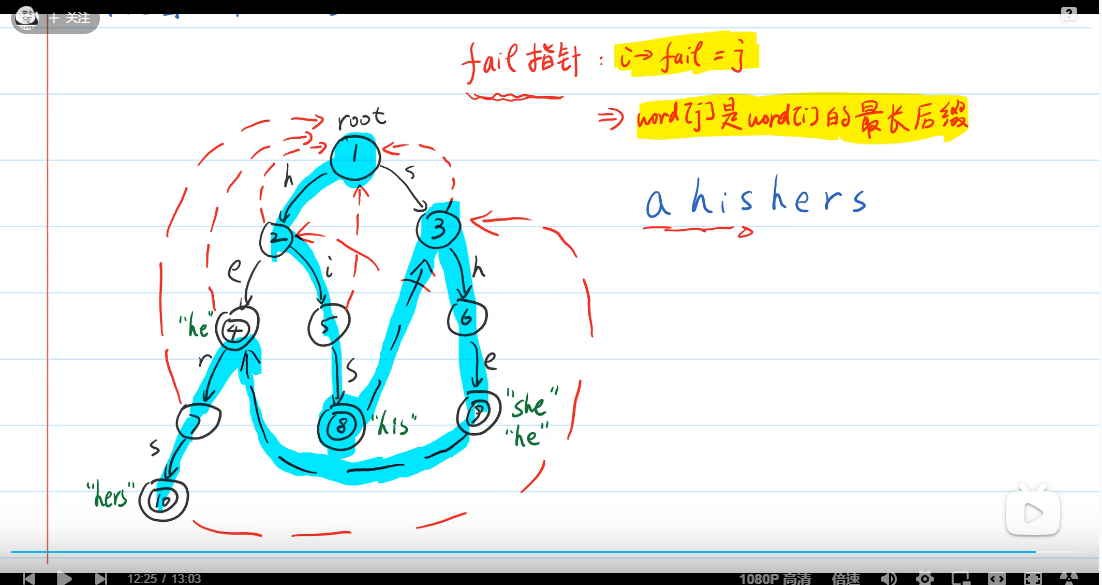 + 关注
fail指针：i→fail = j
⇒ word[j]是word[i]的最长后缀
root
1
h
s
a hishers
2
3
e
i
h
"he"
4
5
6
r
s
e
7
8
"his"
9
"she"
"he"
s
"hers"
10
12:25 / 13:03
1080P 高清
倍速